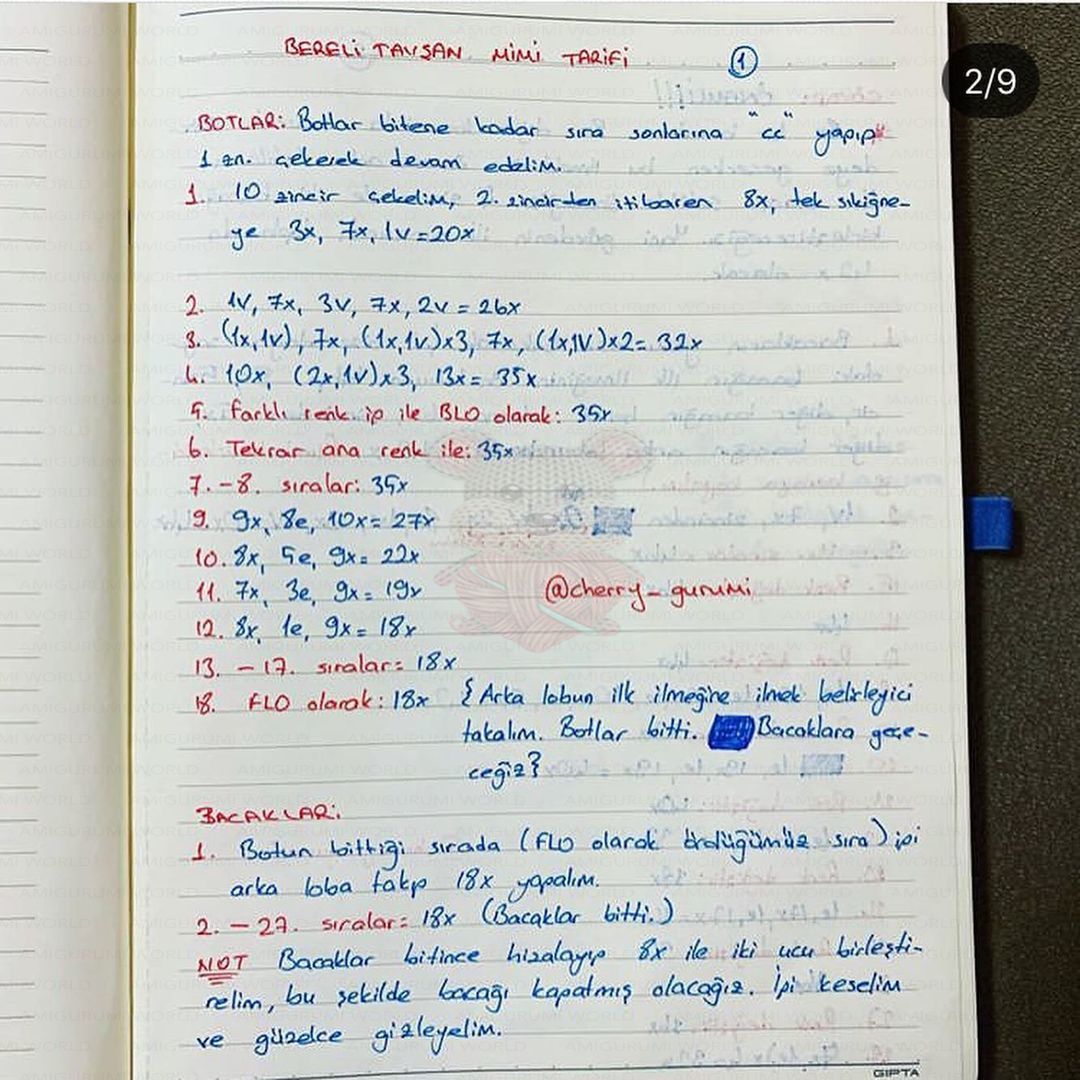 BERELİ TAVŞAN MİMİ TARİFİ 1
2/9
BOTLAR: Botlar bitene kadar sıra sonlarına "cc" yapıp
1 zn. çekerek devam edelim.
1. 10 zincir çekelim, 2. zincirden itibaren 8x, tek sıkiğne-
ye 3x, 7x, 1v=20x
2. 1v, 7x, 3v, 7x, 2v = 26x
3. (1x,1v), 7x, (1x,1v)x3, 7x, (1x,1v)x2= 32x
4. 10x, (2x,1v)x3, 13x= 35x
5. farklı renk ip ile BLO olarak: 35x
6. Tekrar ana renk ile: 35x
7.-8. sıralar: 35x
9. 9x, 8e, 10x= 27x
10. 8x, 5e, 9x= 22x
11. 7x, 3e, 9x= 19x
@cherry_gurumi
12. 8x, 1e, 9x= 18x
13. - 17. sıralar= 18x
18. FLO olarak: 18x {Arka lobun ilk ilmeğine ilmek belirleyici
takalım. Botlar bitti. Bacaklara geçe-
ceğiz}
BACAKLAR:
1. Botun bittiği sırada (FLO olarak ördüğümüz sıra) ipi
arka loba takıp 18x yapalım.
2. - 27. sıralar= 18x (Bacaklar bitti.)
NOT Bacaklar bitince hizalayıp 8x ile iki ucu birleşti-
relim, bu şekilde bacağı kapatmış olacağız. İpi keselim
ve güzelce gizleyelim.
GIPTA
AMIGURUMI WORLD